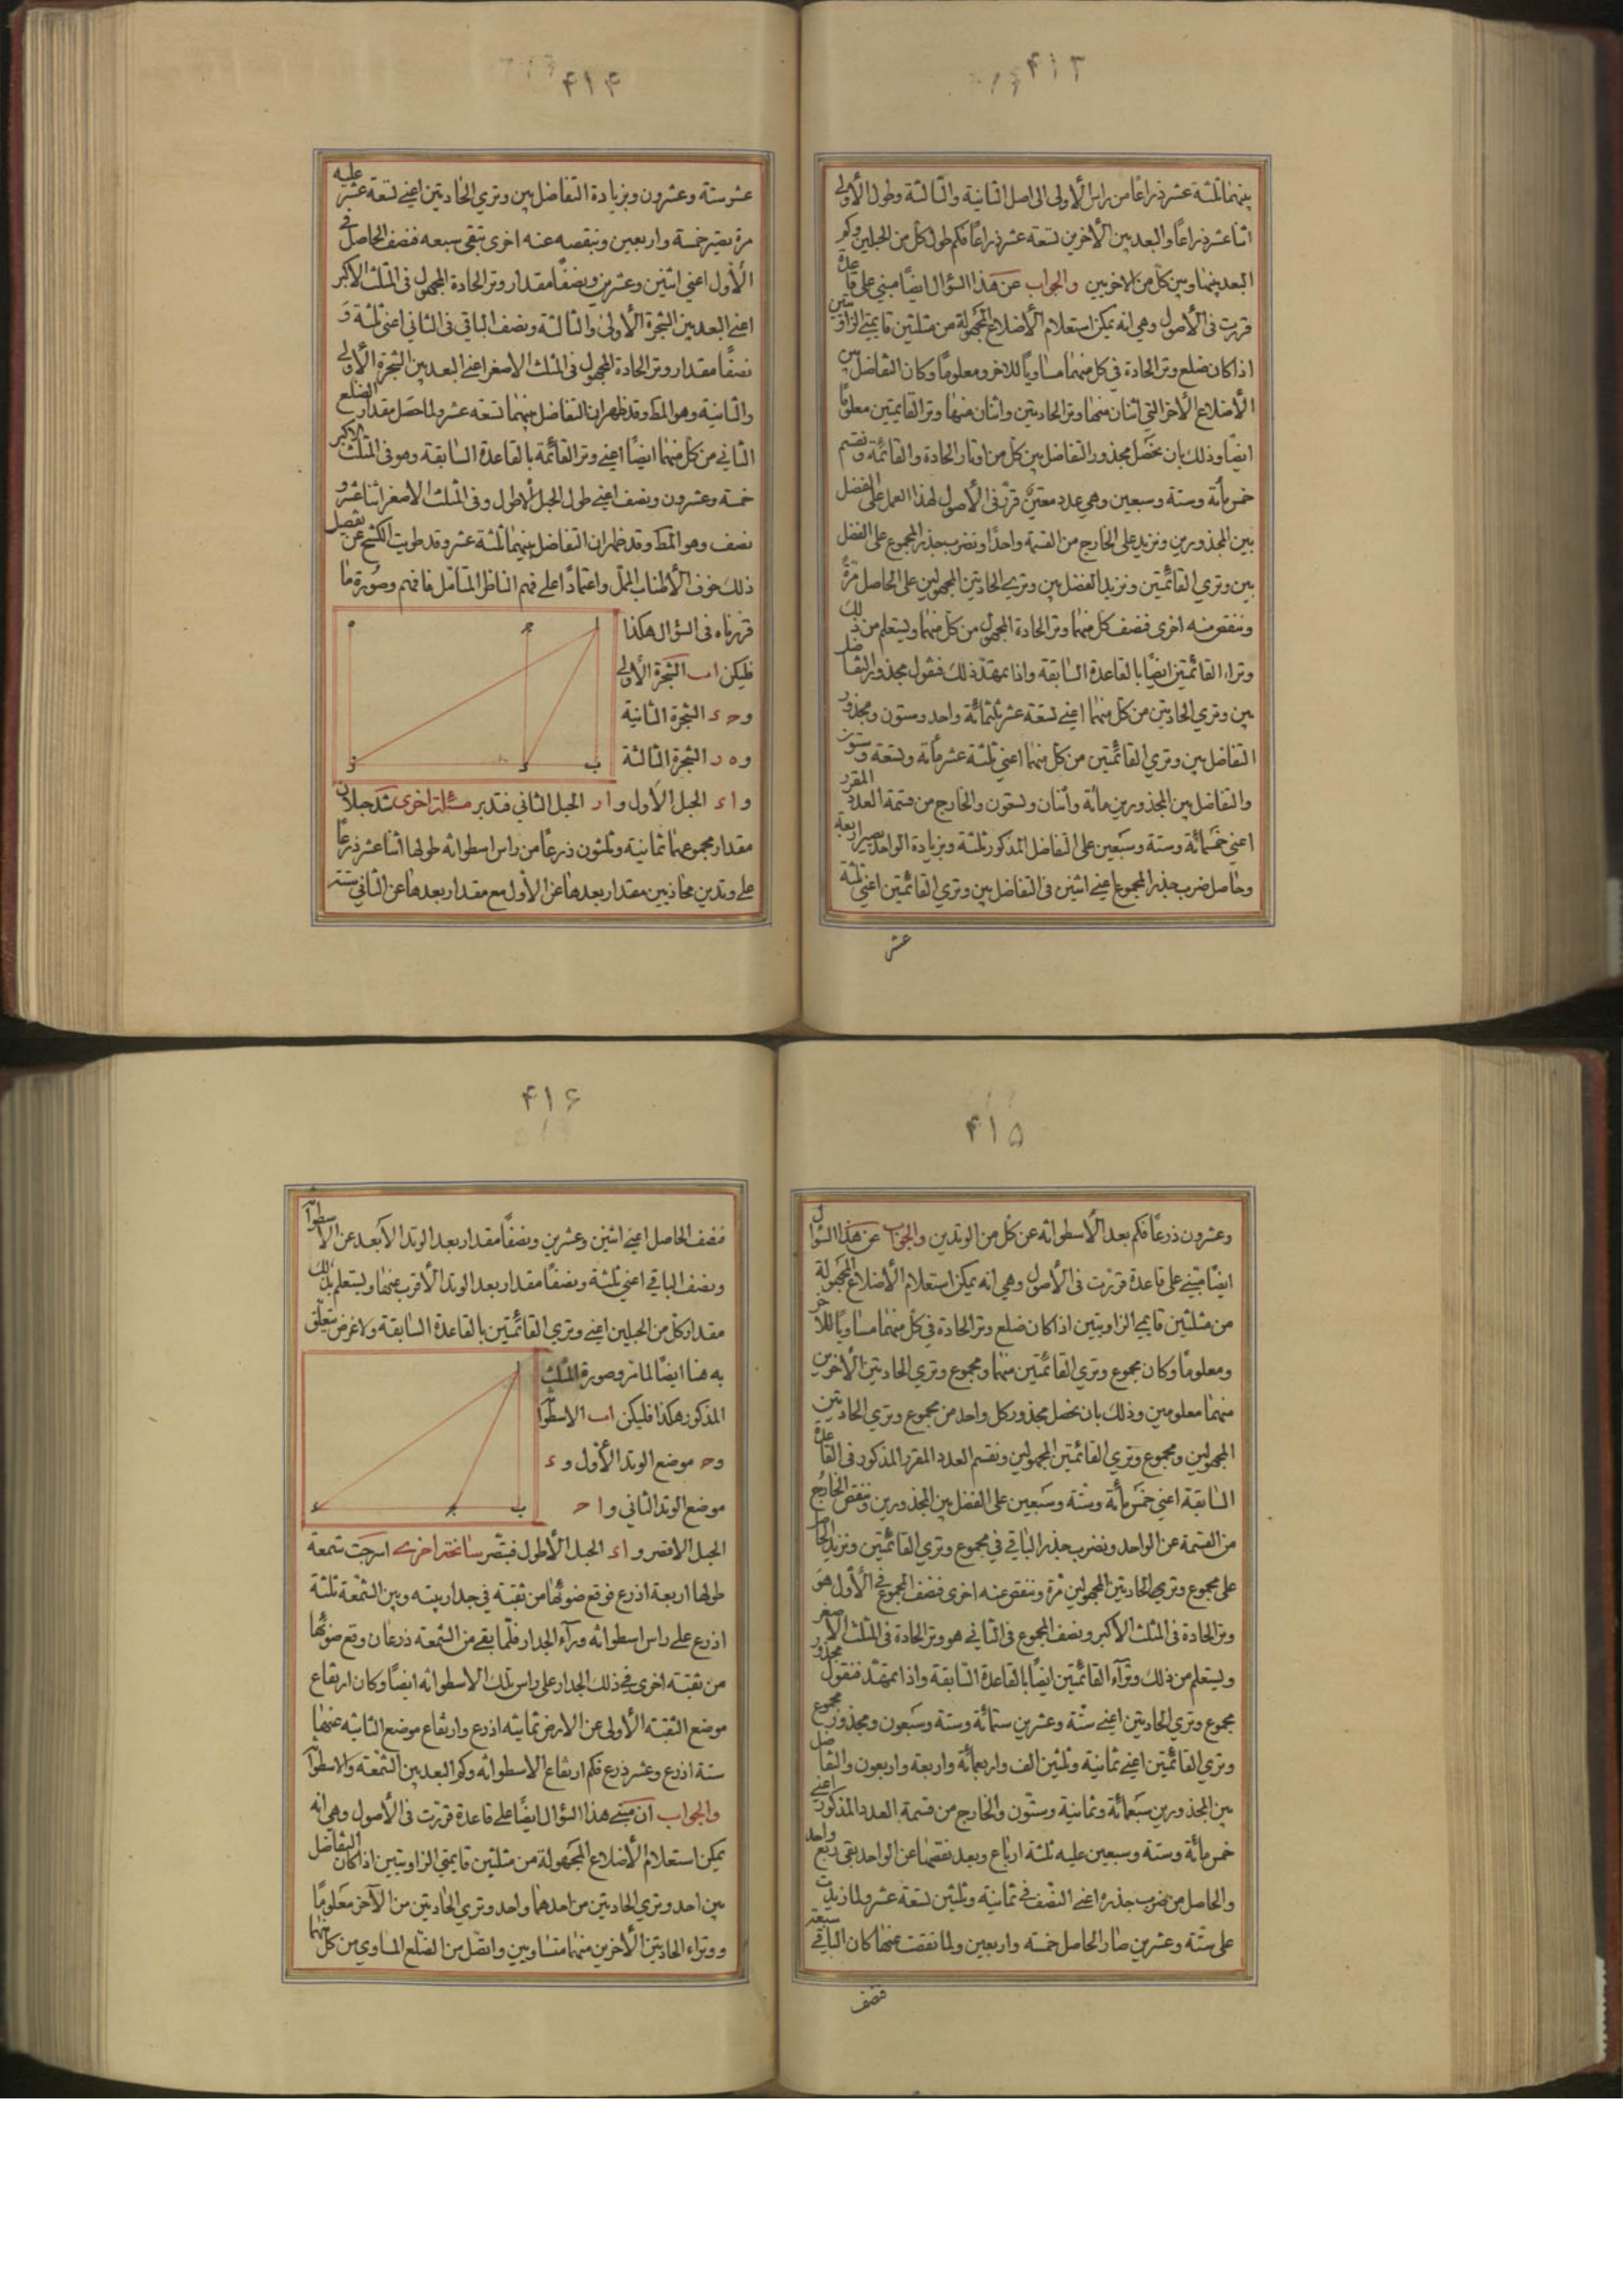 ۴۱۳
بينهما ثلثة عشر ذراعًا من راس الأولى الى اصل الثانية والثالثة وطول الأولى
اثنا عشر ذراعًا والبعد بين الأخرين تسعة عشر ذراعًا فكم طول كل من الحبلين وكم
البعد بينها وبين كل من الاخريين والجواب عن هذا السؤال ايضًا مبني على قاعدة
قررت فى الأصول وهي انه يمكن استعلام الأضلاع المجهولة من مثلثين قايمتي الزاويتين
اذا كان ضلع وتر الحادة فى كل منهما مساويًا للاخر ومعلومًا وكان التفاضل بين
الأضلاع الأخر التي اثنان منها وترا الحادتين واثنان منها وترا القايمتين معلومًا
ايضًا وذلك بان نحصل مجذور التفاضل بين كل من اوتار الحادة والقائمة ونقسم
خمسمأة وستة وسبعين وهي عدد معين قرر فى الأصول لهذا العمل على الفضل
بين المجذورين ونزيد على الخارج من القسمة واحدًا ونضرب جذر المجموع على الفضل
بين وتري القائمتين ونزيد الفضل بين وتري الحادتين المجهولين على الحاصل مرّة
وننقص منه اخرى فنصف كل منهما وتر الحادة المجهول من كل منهما ويستعلم من ذلك
وترا القائمتين ايضًا بالقاعدة السابقة واذا تمهّد ذلك فنقول مجذور التفاضل
بين وتري الحادتين من كل منهما اعني تسعة عشر ثلثمائة واحد وستون ومجذور
التفاضل بين وتري القائمتين من كل منهما اعني ثلثة عشر مأة وتسعة وستون
والتفاضل بين المجذورين مائة واثنان وتسعون والخارج من قسمة العدد المقرر
اعني خمسمائة وستة وسبعين على التفاضل المذكور ثلثة وبزيادة الواحد يصير اربعة
وحاصل ضرب جذر المجموع اعني اثنين فى التفاضل بين وتري القائمتين اعني ثلثة
عشر
۴۱۴
عشر ستة وعشرون وبزيادة التفاضل بين وتري الحادتين اعني تسعة عشر عليه
مرة يصير خمسة واربعين وبنقصه عنه اخرى تبقى سبعه فنصف الحاصل فى
الأول اعني اثنين وعشرين ونصفًا مقدار وتر الحادة المجهول فى المثلث الأكبر
اعني البعد بين الشجرة الأولى والثالثة ونصف الباقي فى الثاني اعني ثلثة و
نصفًا مقدار وتر الحادة المجهول فى المثلث الاصغر اعني البعد بين الشجرة الأولى
والثانية وهو المط وقد ظهر ان التفاضل بينهما تسعه عشر ولما حصل مقدار الضلع
الثاني من كل منهما ايضًا اعني وتر القائمة بالقاعدة السابقة وهو فى المثلث الاكبر
خمسة وعشرون ونصف اعني طول الحبل الأطول وفى المثلث الاصغر اثنا عشر و
نصف وهو المط وقد ظهر ان التفاضل بينهما ثلثة عشر وقد طويت الكشح عن تفصيل
ذلك خوف الأطناب الممل واعتمادًا على فهم الناظر المتأمل فافهم وصورة ما
قررناه فى السؤال هكذا
فليكن اب الشجرة الأولى
وح ء الشجرة الثانية
وه ر الشجرة الثالثة
و اء الحبل الأول و ار الحبل الثاني فتدبر مسئلة اخرى شد حبلان
مقدار مجموعهما ثمانية وثلثون ذرعًا من راس اسطوانه طولها اثنا عشر ذرعًا
على وتدين محاذيين مقدار بعدها عن الأول مع مقدار بعدها عن الثاني ستة
۴۱۵
وعشرون ذرعًا فكم بعد الأسطوانه عن كل من الوتدين والجواب عن هذا السؤال
ايضًا مبني على قاعدة قررت فى الأصول وهي انه يمكن استعلام الأضلاع المجهولة
من مثلثين قايمي الزاويتين اذا كان ضلع وتر الحادة فى كل منهما مساويًا للآخر
ومعلومًا وكان مجموع وتري القائمتين منهما ومجموع وتري الحادتين الأخرين
منهما معلومين وذلك بان نحصل مجذور كل واحد من مجموع وتري الحادتين
المجهولين ومجموع وتري القائمتين المجهولين ونقسم العدد المقرر المذكور فى القاعدة
السابقة اعني خمسمأة وستة وسبعين على الفضل بين المجذورين وننقص الخارج
من القسمة عن الواحد ونضرب جذر الباقي فى مجموع وتري القائمتين ونزيد الحاصل
على مجموع وتري الحادتين المجهولين مرّة وننقص عنه اخرى فنصف المجموع فى الأول هو
وتر الحادة فى المثلث الأكبر ونصف المجموع فى الثاني هو وتر الحادة فى المثلث الأصغر
ويستعلم من ذلك وترآء القائمتين ايضًا بالقاعدة السابقة واذا تمهّد فنقول مجذور
مجموع وتري الحادتين اعني ستة وعشرين ستمائة وستة وسبعون ومجذور مجموع
وتري القائمتين اعني ثمانية وثلثين الف واربعمائة واربعة واربعون والتفاضل
بين المجذورين سبعمائة وثمانية وستون والخارج من قسمة العدد المذكور اعني
خمسمائة وستة وسبعين عليه ثلثة ارباع وبعد نقصها عن الواحد بقى ربع واحد
والحاصل من ضرب جذره اعني النصف فى ثمانية وثلثين تسعة عشر ولما زيدت
على ستة وعشرين صار الحاصل خمسه واربعين ولما نقصت عنها كان الباقي سبعة
فنصف
۴۱۶
فنصف الحاصل اعني اثنين وعشرين ونصفًا مقدار بعد الوتد الأبعد عن الأسطوانة
ونصف الباقي اعني ثلثة ونصفًا مقدار بعد الوتد الأقرب عنها ويستعلم بذلك
مقدار كل من الحبلين اعني وتري القائمتين بالقاعدة السابقة ولا غرض يتعلق
به هنا ايضًا لما مر وصورة المثلث
المذكور هكذا فليكن اب الاسطوانة
وح موضع الوتد الأول وء
موضع الوتد الثاني و ا ح
الحبل الاقصر و اء الحبل الأطول فتبصّر سانحة اخرى اسرجت شمعة
طولها اربعة اذرع فوقع ضوئها من ثقبة في جدار بيته وبين الشمعة ثلثة
اذرع على راس اسطوانه ورآء الجدار فلما بقى من الشمعة ذرعان وقع ضوئها
من ثقبته اخرى فى ذلك الجدار على راس تلك الاسطوانه ايضًا وكان ارتفاع
موضع الثقبة الأولى عن الارض ثمانيه اذرع وارتفاع موضع الثانيه عنها
ستة اذرع وعشر ذرع فكم ارتفاع الاسطوانه وكم البعد بين الشمعة والاسطوانة
والجواب ان مبنى هذا السؤال ايضًا على قاعدة قررت فى الأصول وهي انه
يمكن استعلام الأضلاع المجهولة من مثلثين قايمتي الزاويتين اذا كان التفاضل
بين احد وتري الحادتين من احدهما واحد وتري الحادتين من الآخر معلومًا
ووتراء الحادتين الأخرين منهما متساويين واتصل من الضلع المساوي من كل منهما